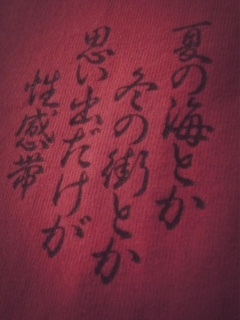 夏の海とか
冬の街とか
思い出だけが
性感帯